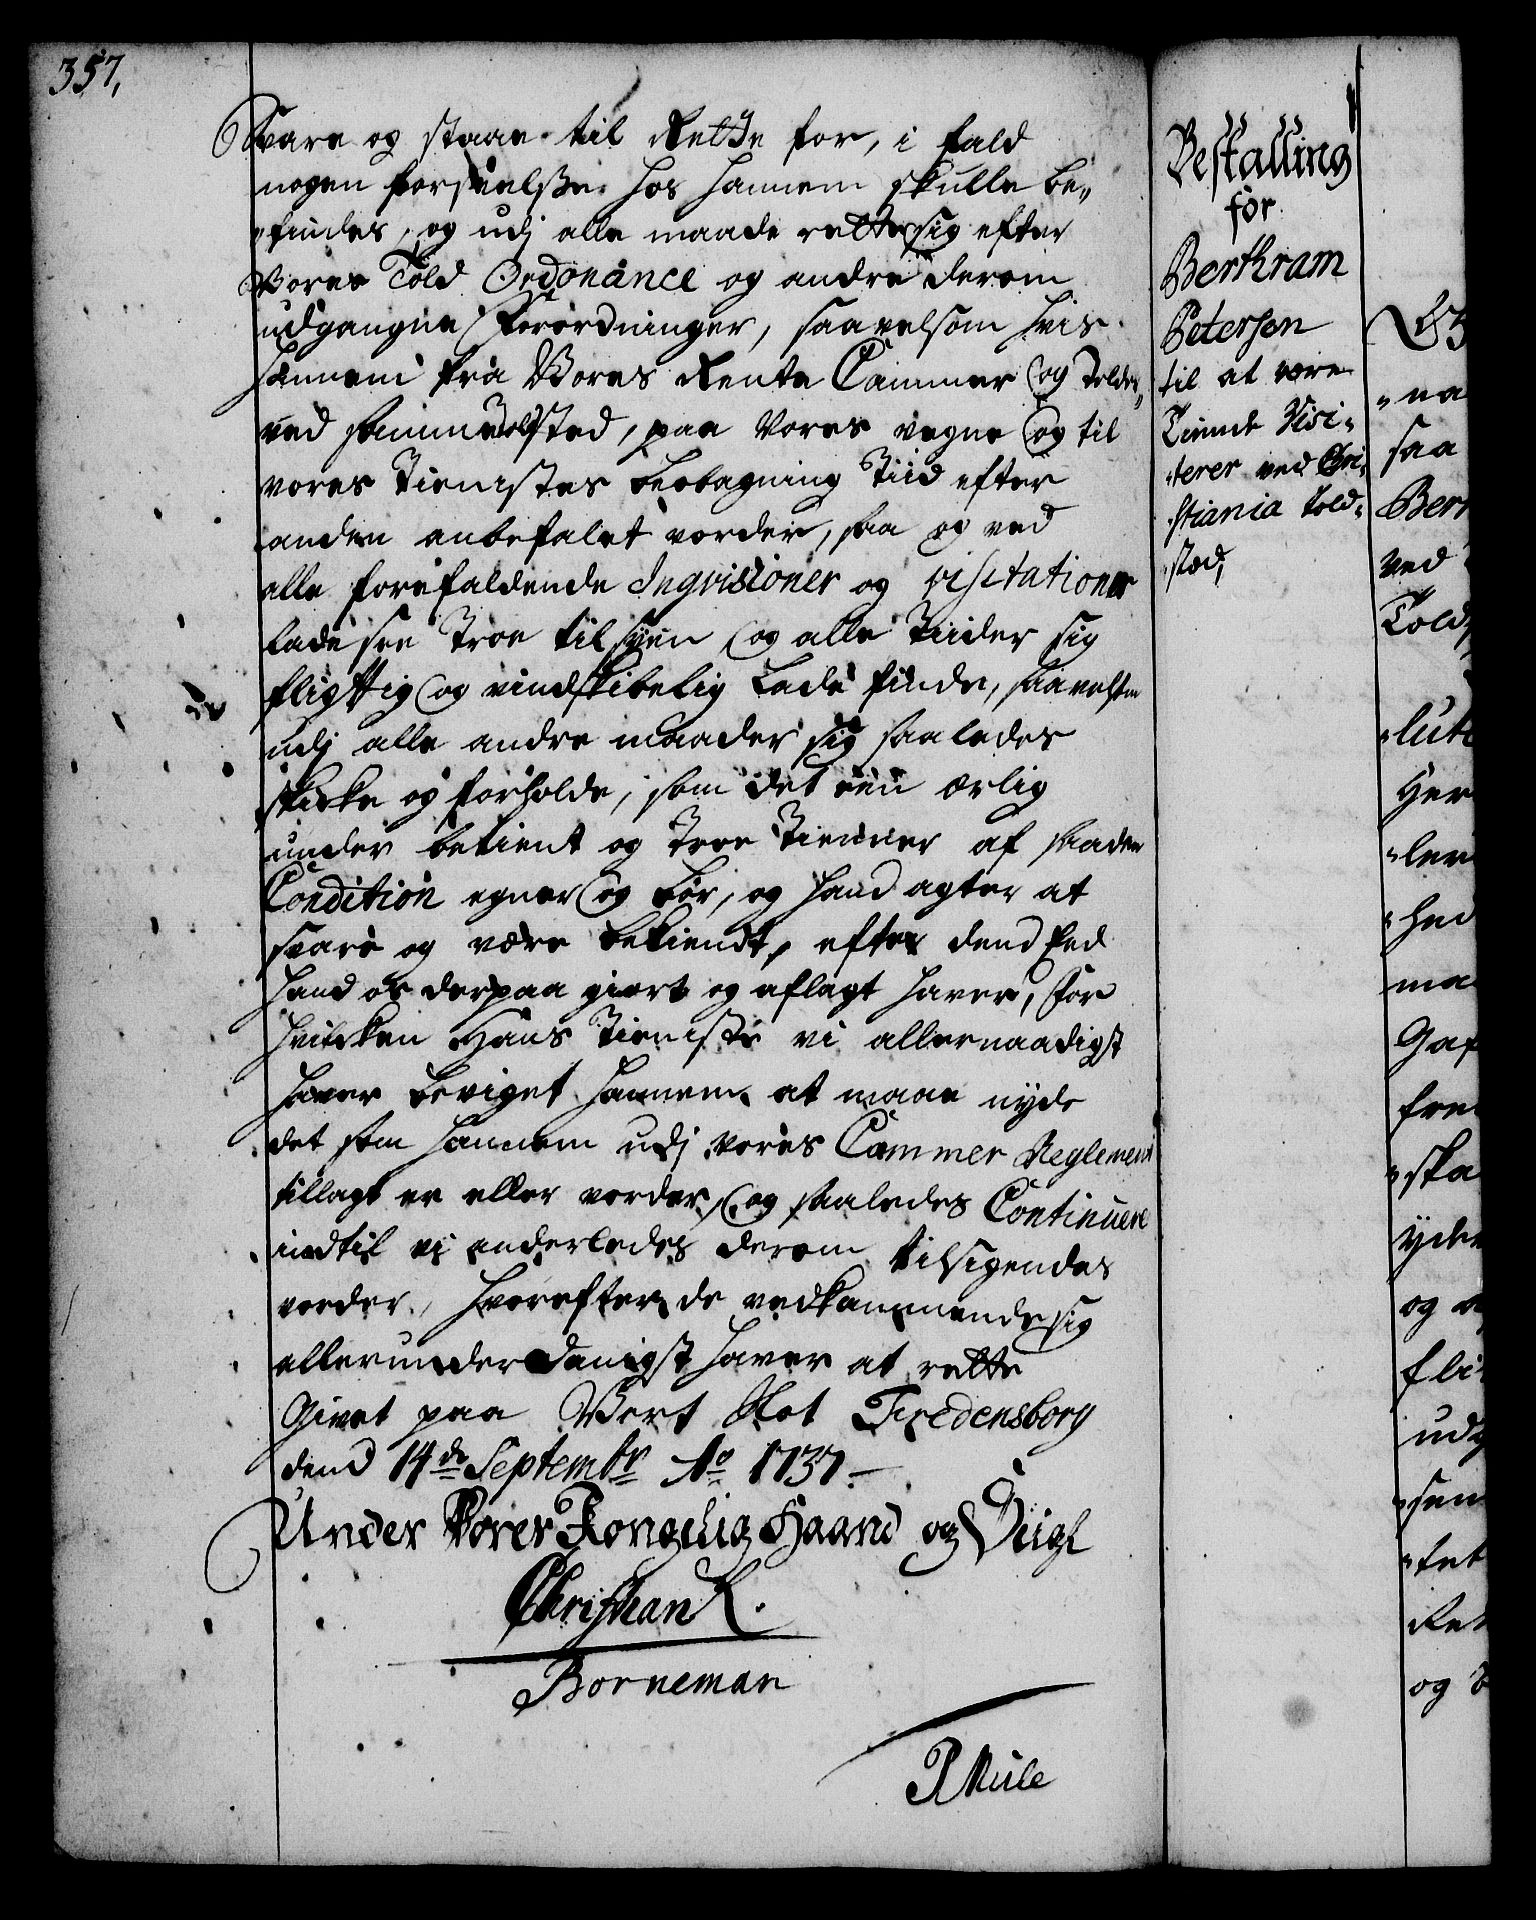 357,
Svare og staae til Rette for, i fald
nogen forseelße hos hannem skulle be„
„findes, og udj alle maade rette sig efter
Vores Told Ordonance og andre derom
udgangne Forordninger, saavelsom hvis
hannem fra Vores Rente Cammer og Tolder„
ved samme Toldsted, paa Vores vegne og til
vores Tienistes Beobagning Tiid efter
anden anbefalet vorder, saa og ved
alle forefaldende Inqvisioner og visitationer
lade see Troe tilsyen og alle Tiider sig
fligttig og vindskibelig Lade finde, saavelsom
udj alle andre maader sig saaledes
skicke og forholde, som det een ærlig
under betient og Troe Tienner af saaden
Condition egner og bør, og hand agter at
svare og være bekiendt, efter dend Eed
hand os derpaa giort og aflagt haver, For
hvilcken Hans Tieniste vi allernaadigst
haver beviget hannem at maae nyde
det som hannem udj vores Cammer Reglement
tillagt er eller vorder, og saaledes Continuere
indtil vi anderledes derom tilsigendes
vorder, hvorefter de vedkommende sig
allerunderdanigst haver at rette
Givet paa Vort Slot Fredensborg
dend 14de Septembr Ao 1737.
Under Vores Kongelig Haand og Seigl
Christian R.
Borneman
P Mule
Bestalling
for
Berthram
Petersen
til at være
Tinnde Visi„
„terer ved Chri„
„stiania Told„
„sted,
„na
saa
Bert
ved
Told
„lute
Her
„ler
„hed
ma
Gaf
fre
„ska
yde
og
fli
ud
„sen
„tet
Ret
og